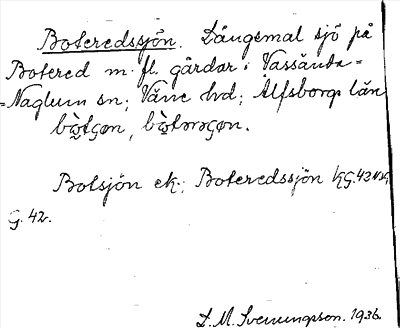 Boteredssjön. Långemal sjö på
Botered m. fl. gårdar i Vassända-
-Naglum sn; Väne hd; Älfsborgs län
Botsjön ek.; Boteredssjön KG. 42
G. 42.
L. M. Svenungsson. 1936.